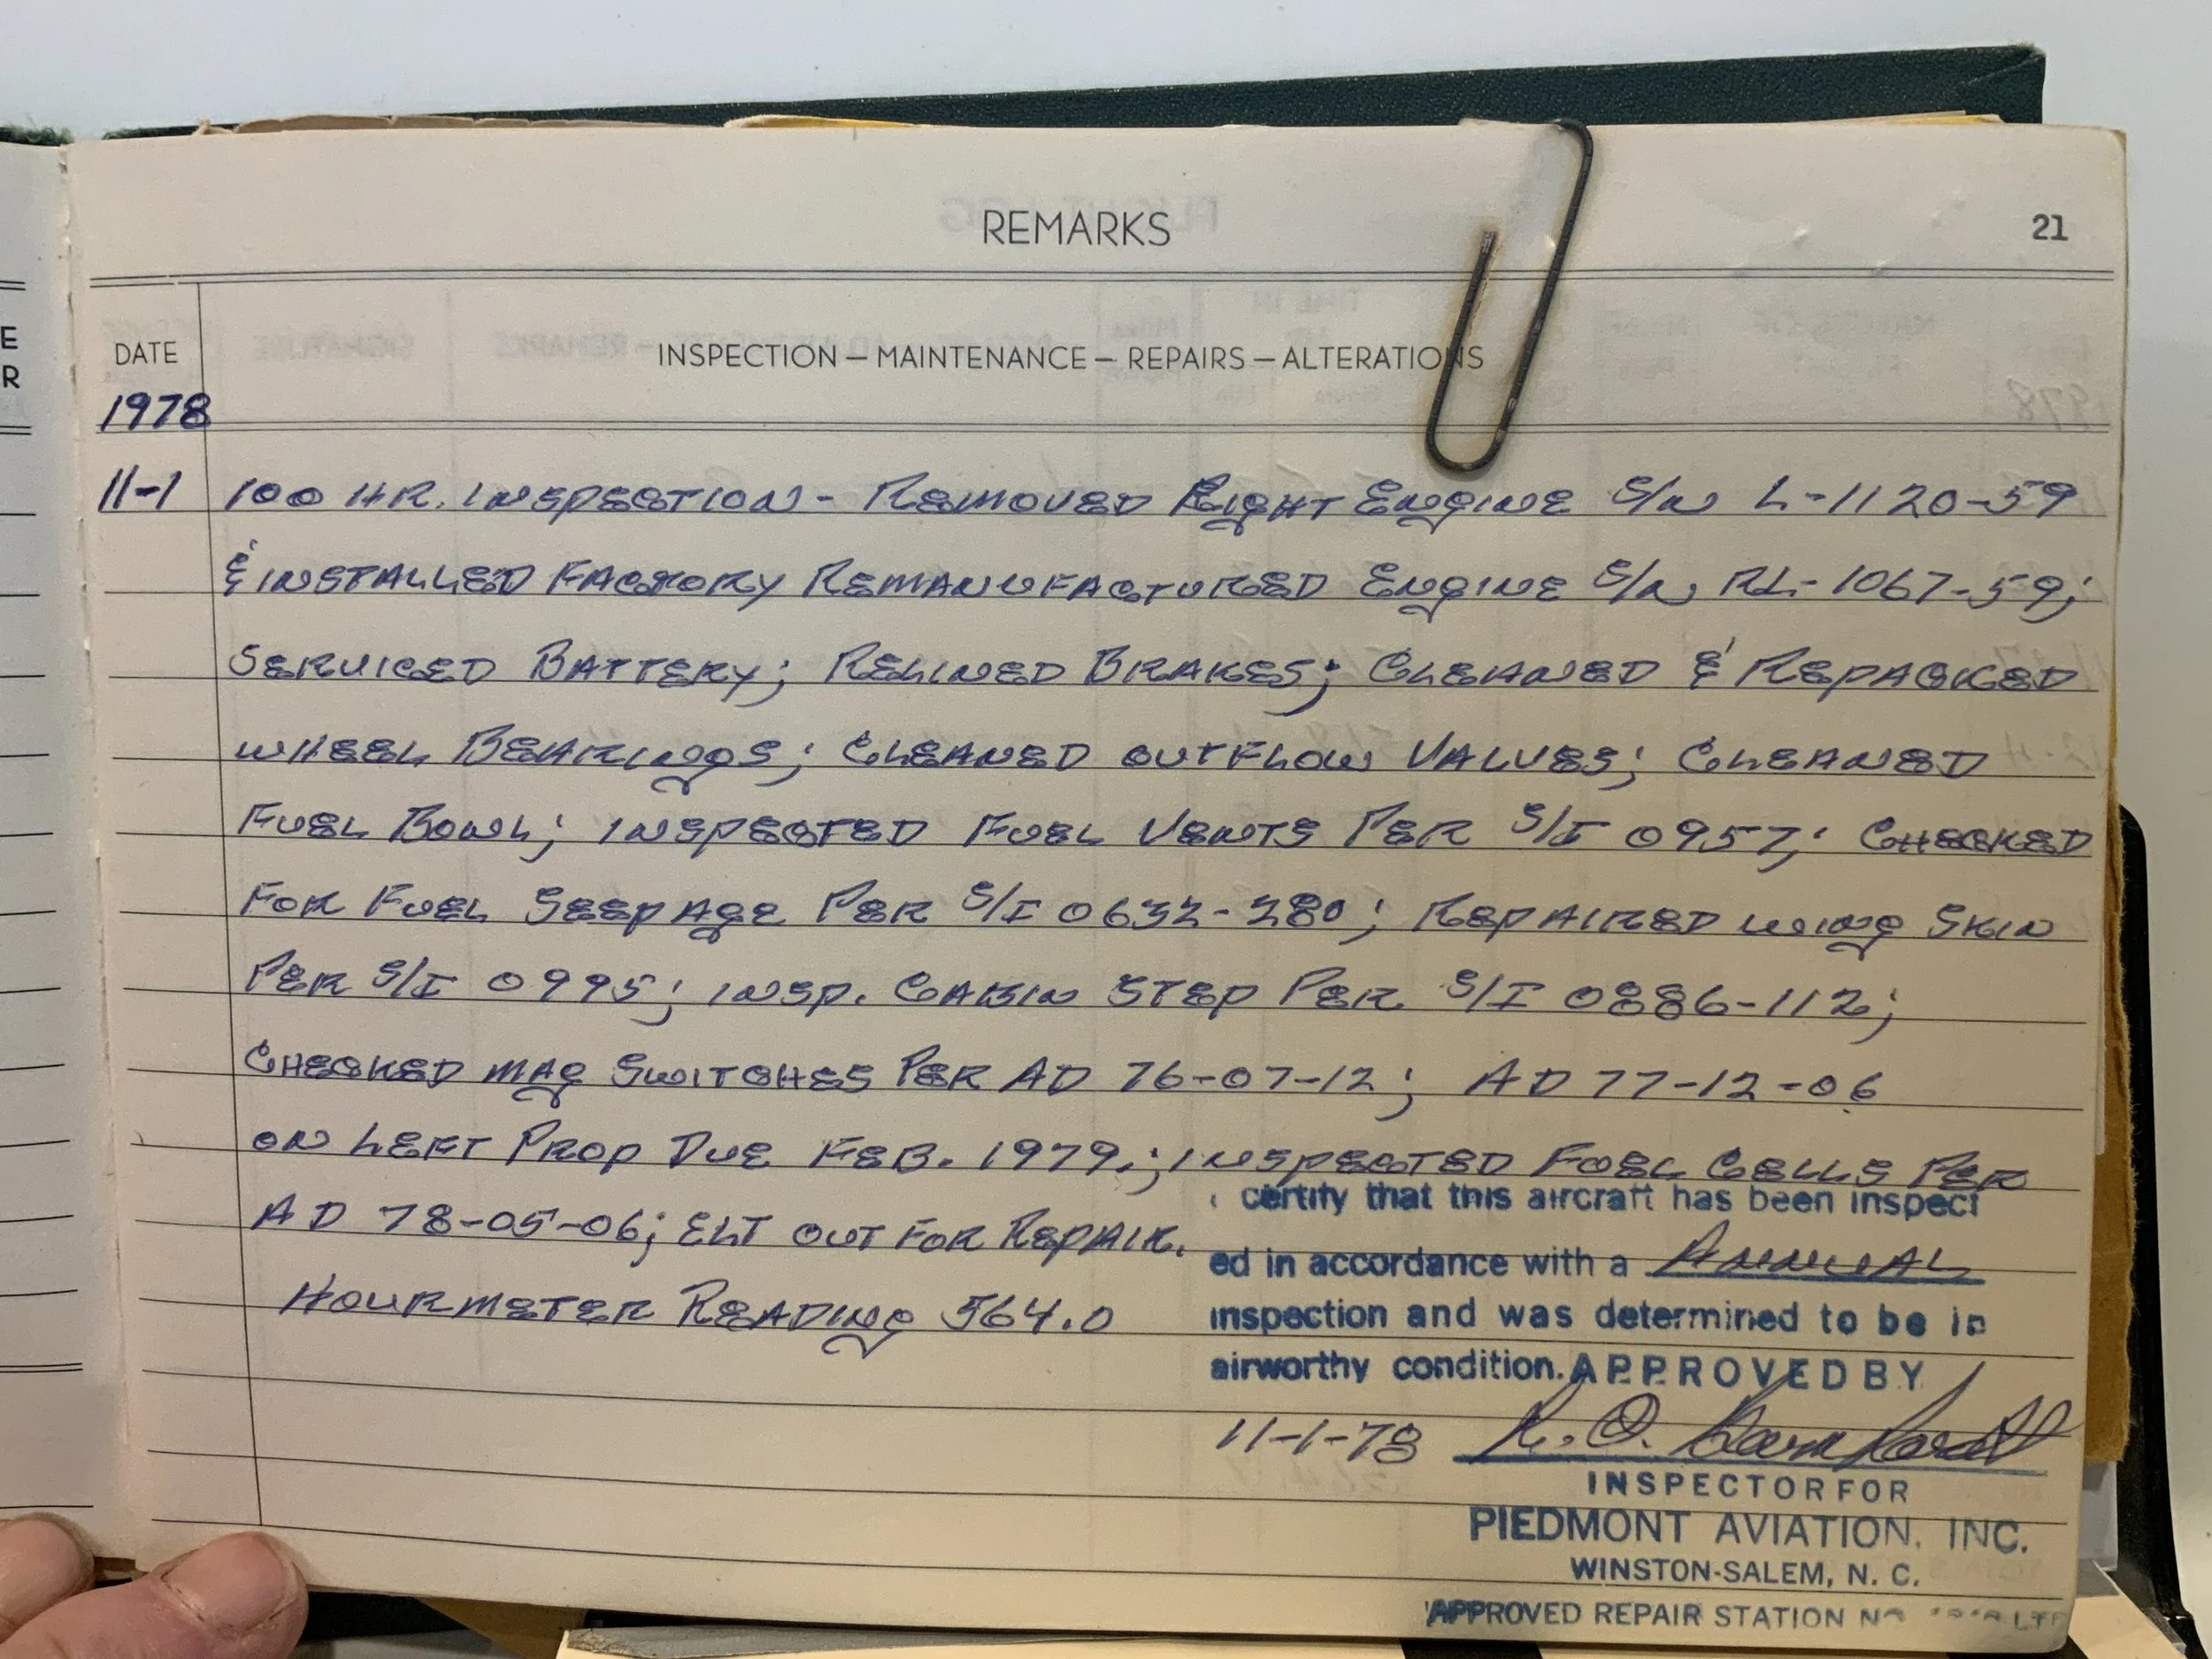 E
R
REMARKS
21
DATE
INSPECTION — MAINTENANCE — REPAIRS — ALTERATIONS
1978
11-1 100 HR. INSPECTION - REMOVED RIGHT ENGINE S/N L-1120-59
& INSTALLED FACTORY REMANUFACTURED ENGINE S/N RL-1067-59;
SERVICED BATTERY; RELINED BRAKES; CLEANED & REPACKED
WHEEL BEARINGS; CLEANED OUTFLOW VALVES; CLEANED
FUEL BOWL; INSPECTED FUEL VENTS PER S/I 0957; CHECKED
FOR FUEL SEEPAGE PER S/I 0632-280; REPAIRED WING SKIN
PER S/I 0995; INSP. CABIN STEP PER S/I 0886-112;
CHECKED MAG SWITCHES PER AD 76-07-12; AD 77-12-06
ON LEFT PROP DUE FEB. 1979.; INSPECTED FUEL CELLS PER
AD 78-05-06; ELT OUT FOR REPAIR.
HOURMETER READING 564.0
certify that this aircraft has been inspect
ed in accordance with a ANNUAL
inspection and was determined to be in
airworthy condition. APPROVED BY
11-1-78 R. O.
INSPECTOR FOR
PIEDMONT AVIATION, INC.
WINSTON-SALEM, N. C.
APPROVED REPAIR STATION NO